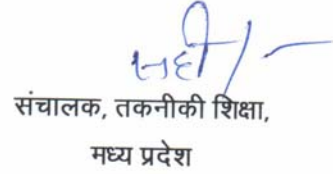 सही/-
संचालक, तकनीकी शिक्षा,
मध्य प्रदेश